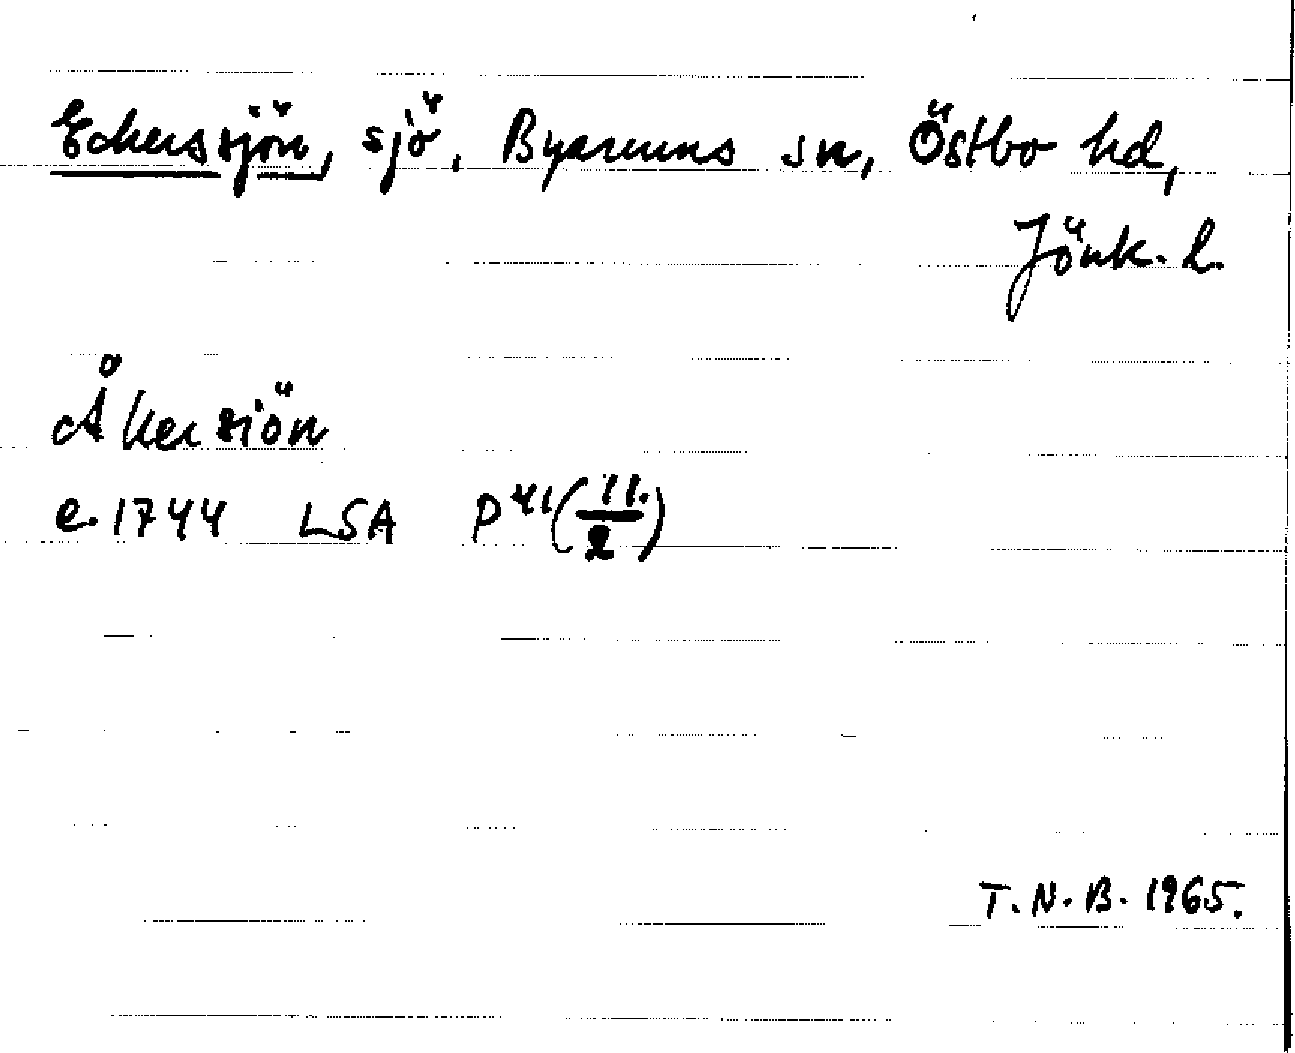 Eckerssjön, sjö, Byarums sn, Östbo hd,
Jönk. l.
Åkersiön
e. 1744 LSA P41(11./2)
T.N.B. 1965.